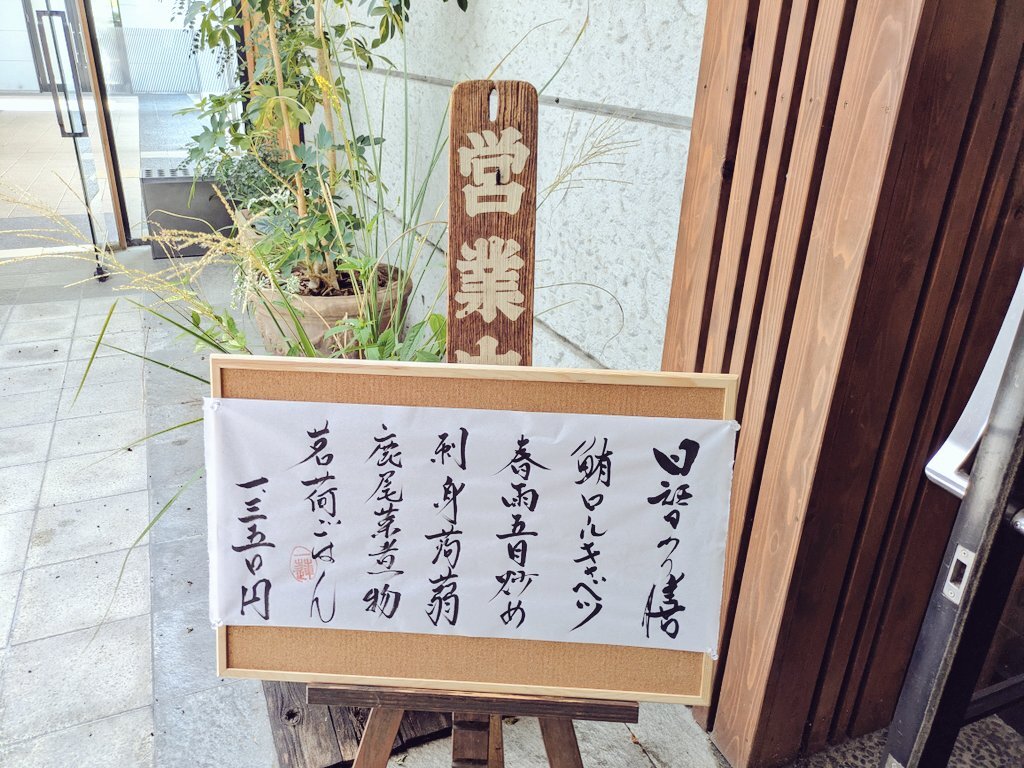 営業中
日替りの膳
鮪ロールキャベツ
春雨五目炒め
刺身蒟蒻
鹿尾菜煮物
茗荷ごはん
一三五〇円